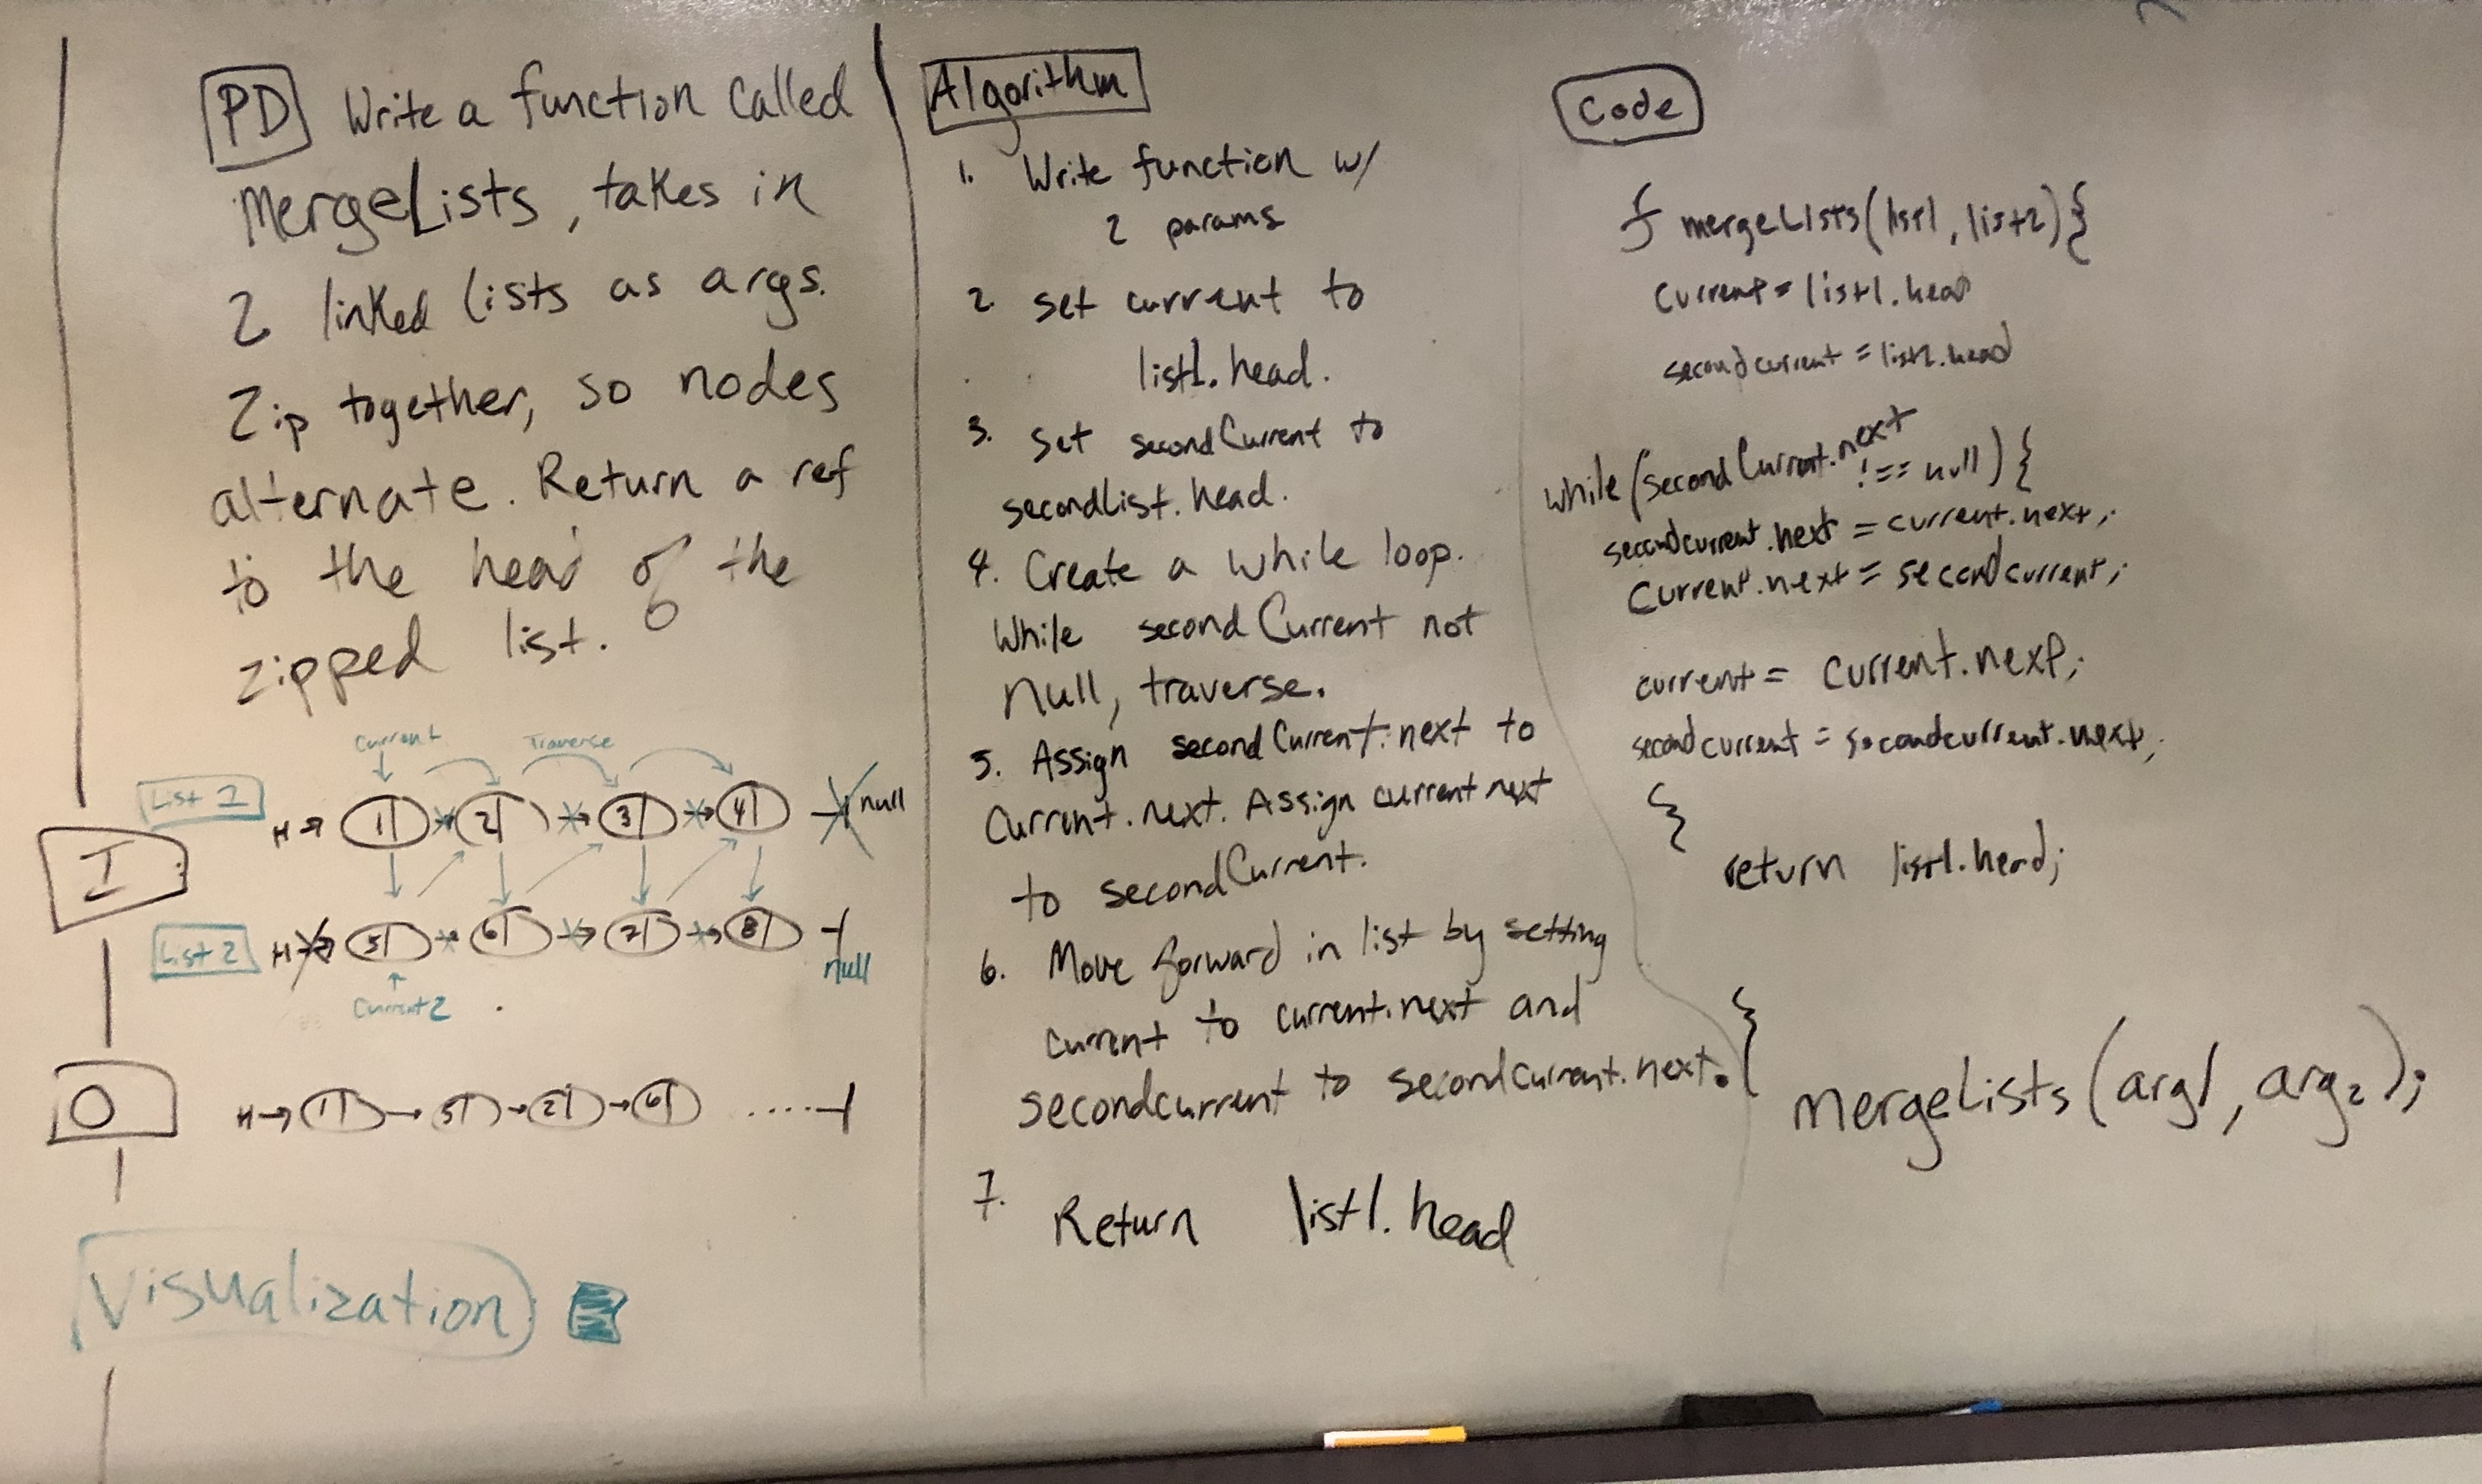 PD Write a function called
MergeLists, takes in
2 linked lists as args.
Zip together, so nodes
alternate. Return a ref
to the head of the
zipped list.
Current Traverse
List 1 H→ 1 → 2 → 3 → 4 null
I
List 2 H→ 5 → 6 → 7 → 8
null
Current2
O H→ 1 → 5 → 2 → 6 .....
Visualization
Algorithm
1. Write function w/
2 params
2. Set current to
list1.head.
3. Set secondCurrent to
secondList.head.
4. Create a while loop.
While secondCurrent not
Null, traverse.
5. Assign secondCurrent.next to
Current.next. Assign current next
to secondCurrent.
6. Move forward in list by setting
current to current.next and
secondcurrent to secondcurrent.next.
7. Return list1.head
Code
f mergeLists(list1, list2){
Current = list1.head
secondcurrent = list2.head
while(secondCurrent.next
!== null) {
secondcurrent.next = current.next;
Current.next = secondcurrent;
current = current.next;
secondcurrent = secondcurrent.next;
}
return list1.head;
}
mergeLists(arg1, arg2);